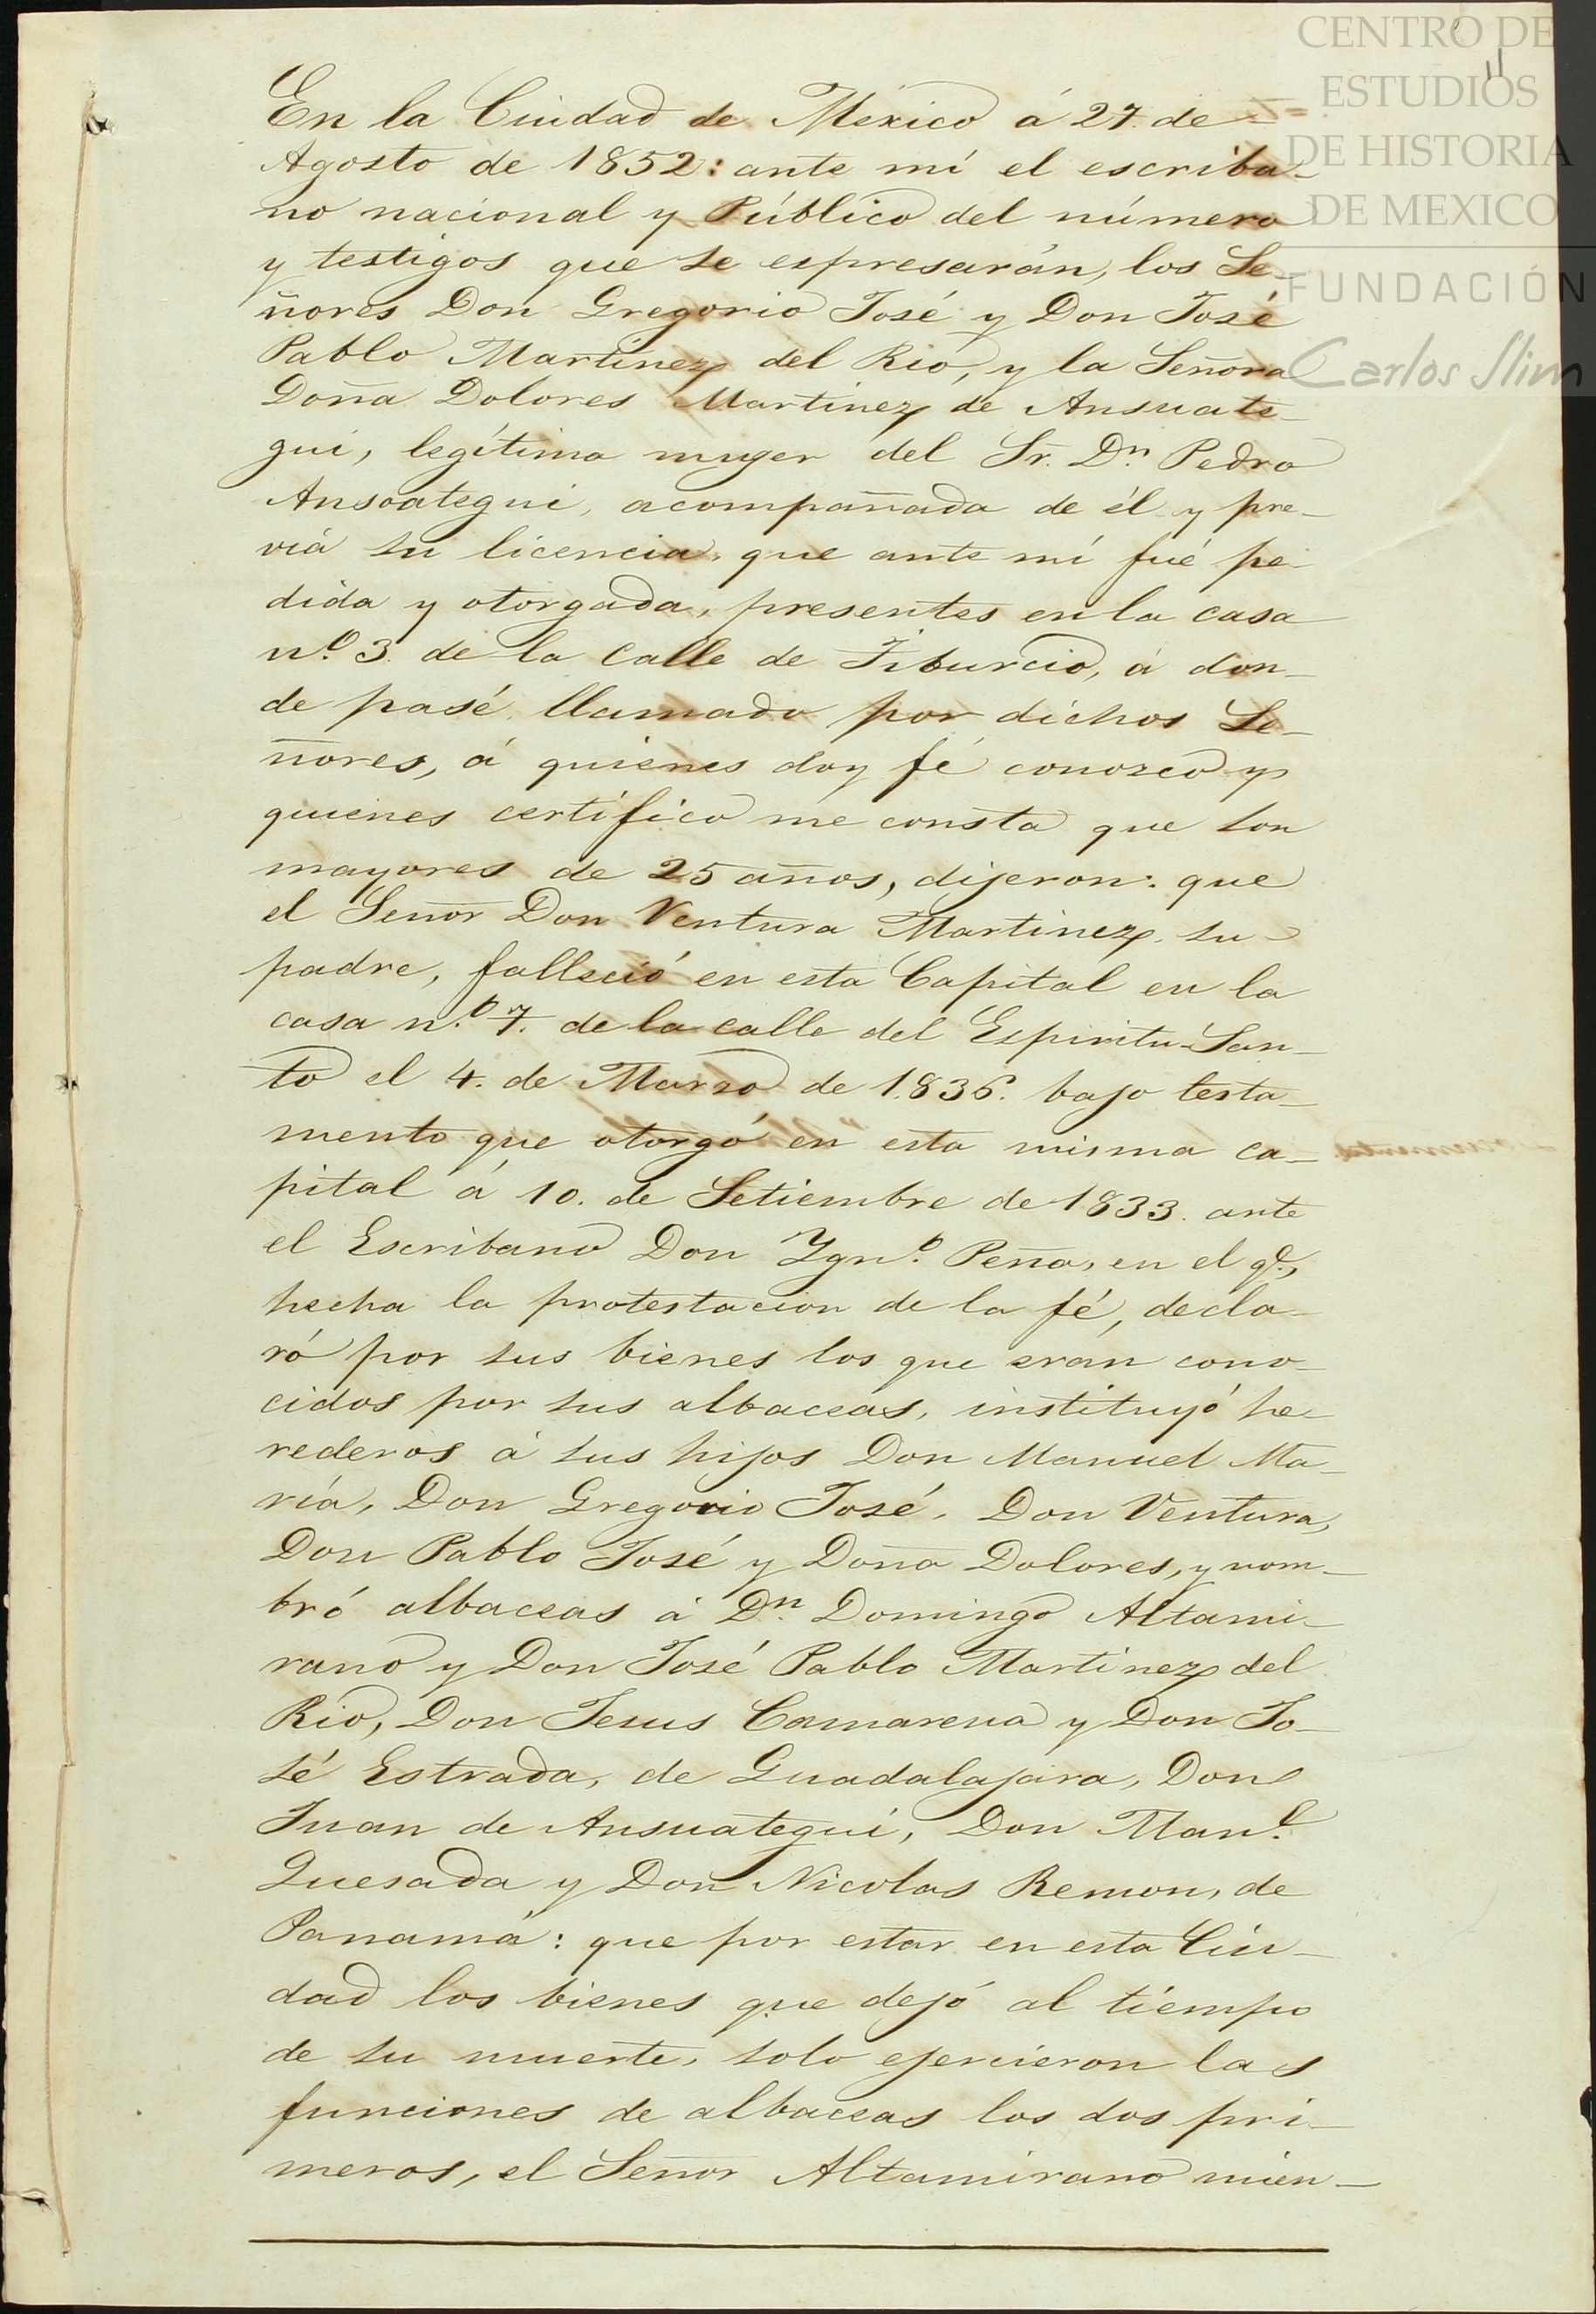 CENTRO DE
ESTUDIOS
DE HISTORIA
DE MEXICO
FUNDACIÓN
Carlos Slim
11
En la Ciudad de México á 27. de
Agosto de 1852: ante mí el escriba-
no nacional y Público del número
y testigos que se espresarán, los Se-
ñores Don Gregorio José y Don José
Pablo Martinez del Rio, y la Señora
Doña Dolores Martinez de Ansuate-
gui, legítima muger del Sr. Dn. Pedro
Ansoategui, acompañada de él y pre-
via su licencia, que ante mí fué pe-
dida y otorgada, presentes en la casa
nº. 3. de la Calle de Tiburcio, á don-
de pasé llamado por dichos Se-
ñores, á quienes doy fé conozco y
quienes certifico me consta que son
mayores de 25 años, dijeron: que
el Señor Don Ventura Martinez, su
padre, falleció en esta Capital en la
casa nº. 7. de la calle del Espiritu San-
to el 4. de Marzo de 1836. bajo testa-
mento que otorgó en esta misma ca-
pital á 10. de Setiembre de 1833. ante
el Escribano Don Ygnº. Peña, en el qe.,
hecha la protestacion de la fé, decla-
ró por sus bienes los que eran cono-
cidos por sus albaceas, instituyó he-
rederos á sus hijos Don Manuel Ma-
ría, Don Gregorio José, Don Ventura,
Don Pablo José y Doña Dolores, y nom-
bró albaceas á Dn. Domingo Altami-
rano y Don José Pablo Martinez del
Rio, Don Jesus Camarena y Don Jo-
sé Estrada, de Guadalajara, Don
Juan de Ansuategui, Don Manl.
Quesada y Don Nicolas Remon, de
Panamá: que por estar en esta Ciu-
dad los bienes que dejó al tiempo
de su muerte, solo ejercieron las
funciones de albaceas los dos pri-
meros, el Señor Altamirano mien-